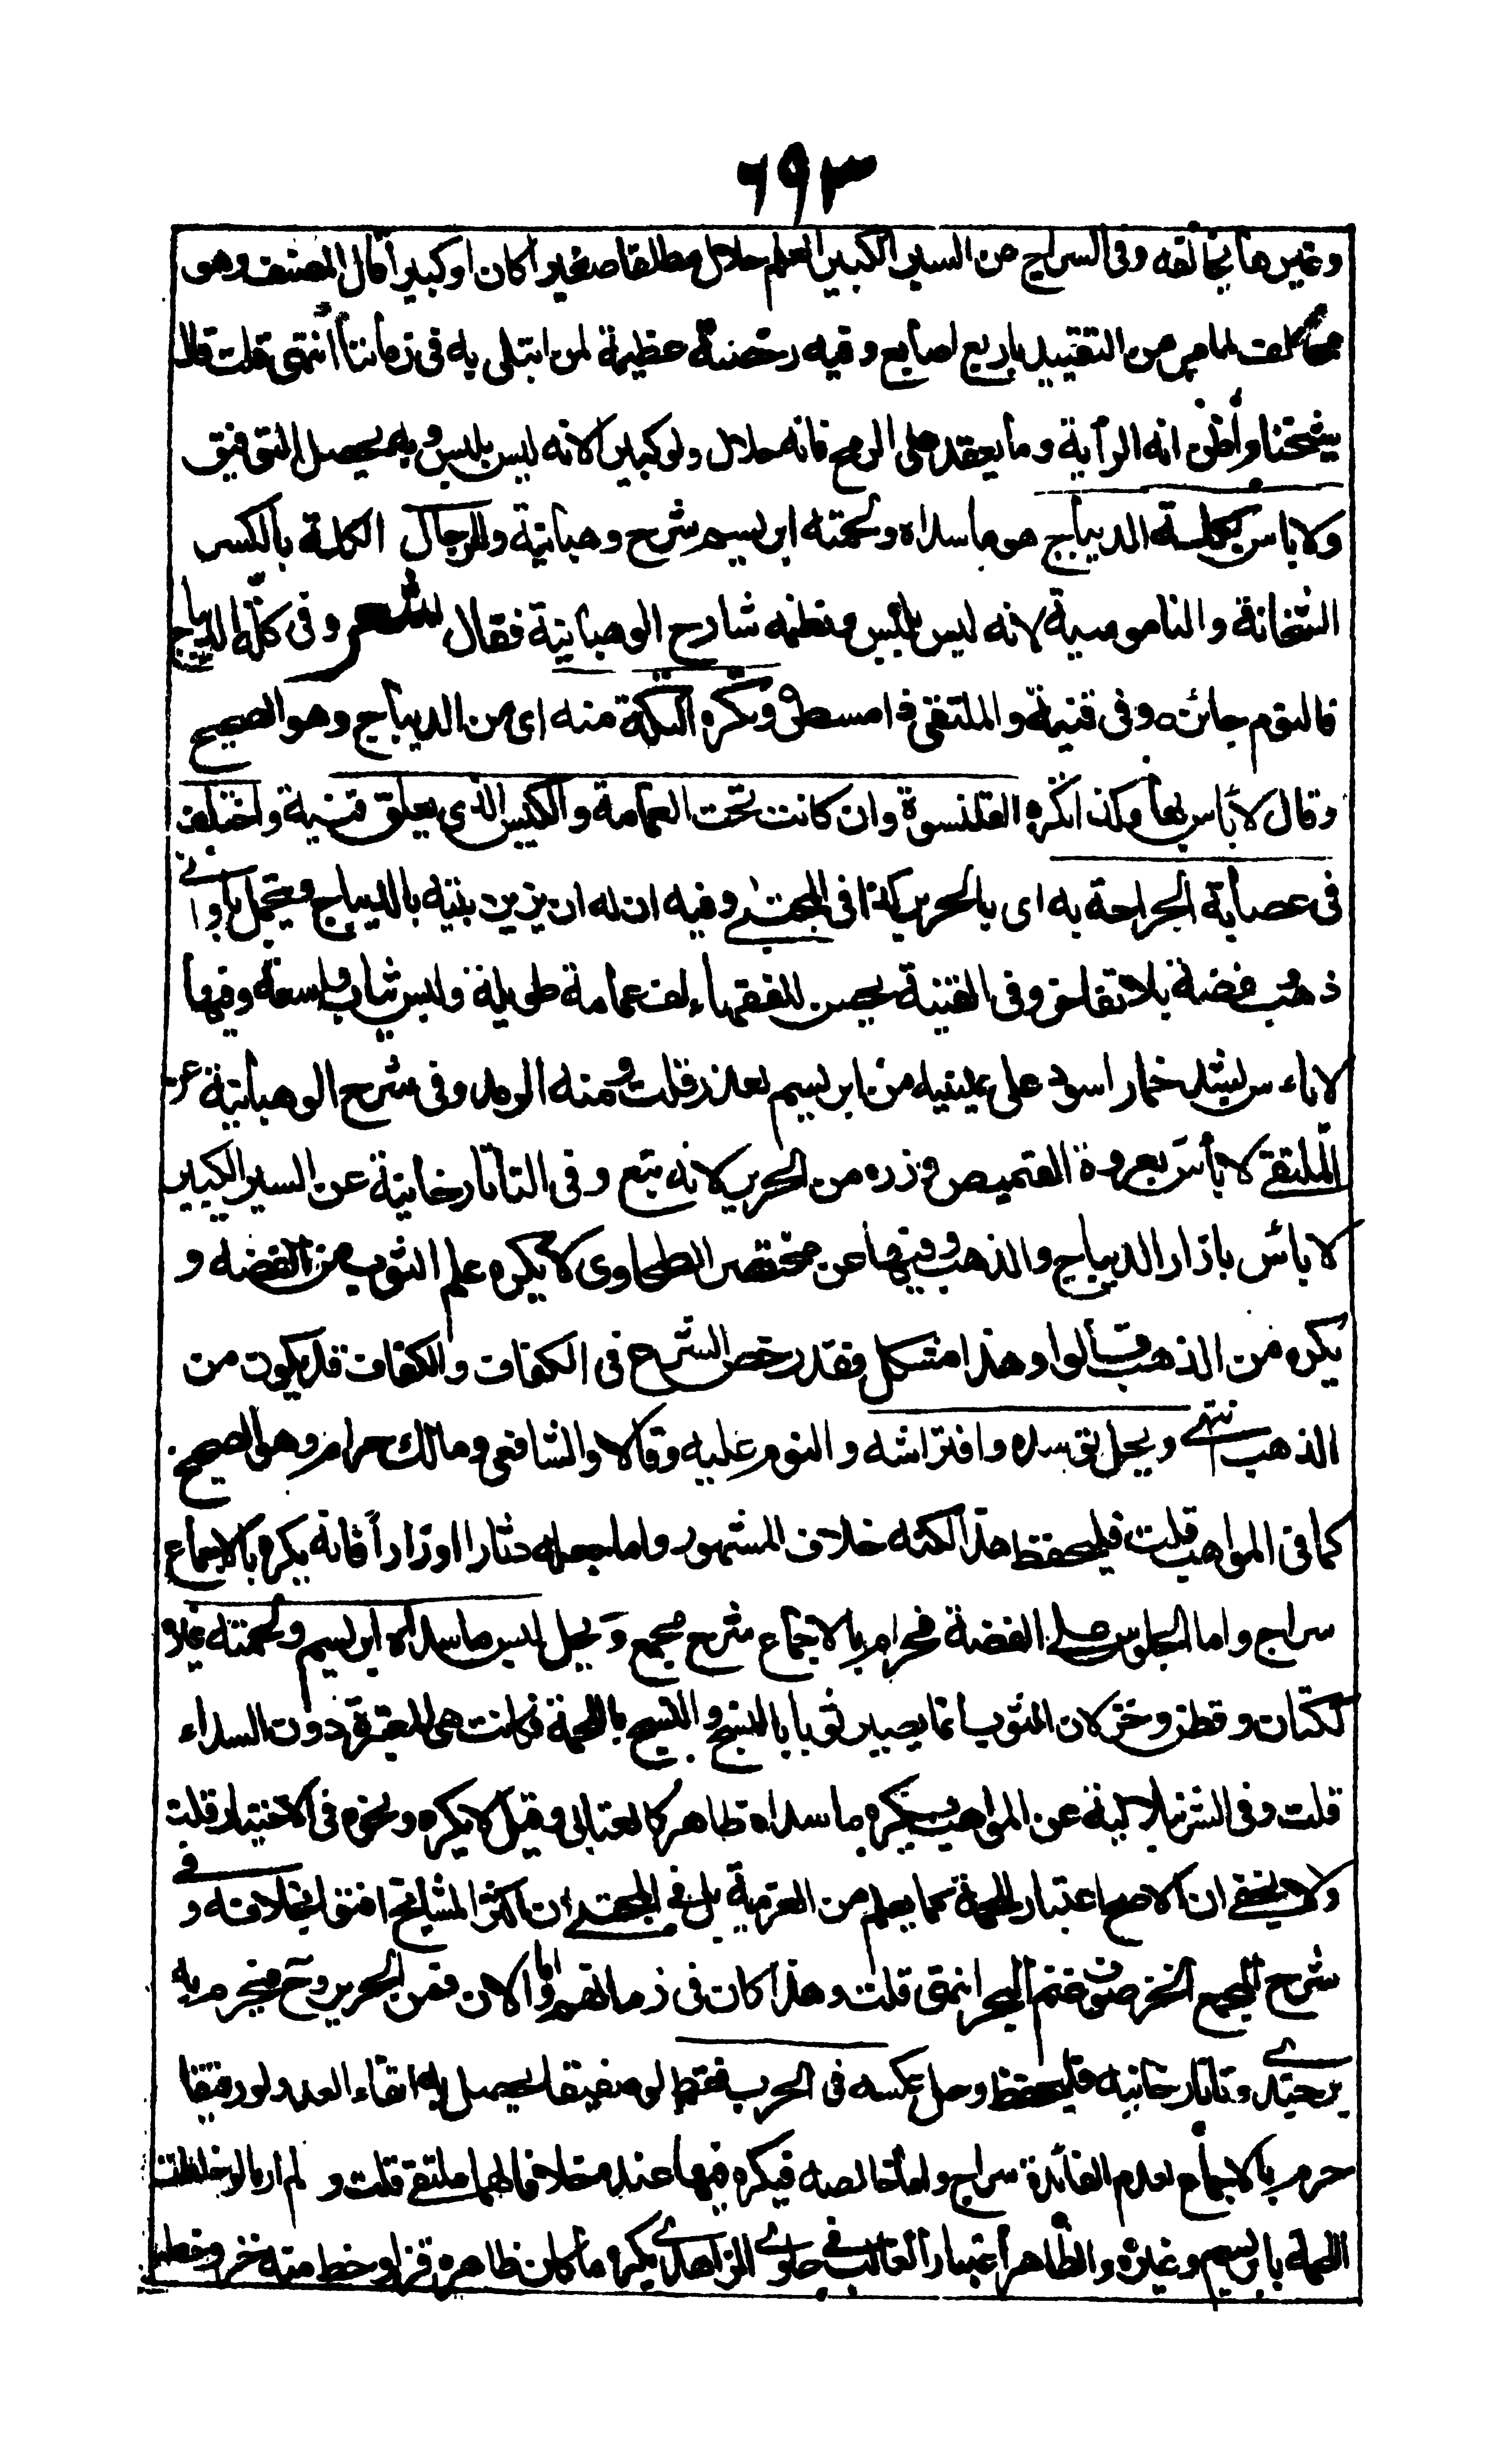 ٦٩٣
وغيرها بخالفه وفى السراج عن السير الكبير العلم حلال مطلقا صغيرا كان او كبيرا قال المصنف وهو
مخالف لما مر من التقييد باربع اصابع وفيه رخصة عظيمة لمن ابتلى به فى زماننا انتهى قلت قال
شيخنا واظن انه الراية وما يعقد على الرمح فانه حلال ولو كبيرا لانه ليس بلبس وبه يحصل التوفيق
ولا باس بكلة الديباج هو ما سداه ولحمته ابريسم شرح وهبانية وللرجال الكلة بالكسر
الشخانة والناموسية لانه ليس بلبس ونظمه شارح الوهبانية فقال شعر وفى كلة الديباج
فالنوم جائزه وفى قنية والملتقى ذا مسطر وتكره التكة منه اى من الديباج وهو الصحيح
وقال لا باس بها وكذا تكره القلنسوة وان كانت تحت العمامة والكيس الذى يعلق قنية واختلف
فى عصابة الجراحة به اى بالحرير كذا فى المجتبى وفيه ان له ان يزين بيته بالديباج ويتجمل باوانى
ذهب وفضة بلا تفاخر وفى القنية يحسن للفقهاء لف عمامة طويلة ولبس ثياب واسعة وفيها
لا باءس بشد خمار اسود على عينيه من ابريسم بعذر قلت ومنه الرمد وفى شرح الوهبانية عن
الملتقى لا بأس بعروة القميص وزره من الحرير لانه تبع وفى التاتارخانية عن السير الكبير
لا بأس بازار الديباج والذهب وفيها عن مختصر الطحاوى لا يكره علم الثوب من الفضه و
يكره من الذهب قالوا وهذا مشكل فقد رخص الشرع فى الكفاف والكفاف قد يكون من
الذهب انتهى ويحل توسده وافتراشه والنوم عليه وقالا والشافعى ومالك حرام وهو الصحيح
كما فى المواهب قلت فليحفظ هذا لكنه خلاف المشهور واما جعله دثارا او زارا فانه يكره بالاجماع
سراج واما الجلوس على الفضة فحرام بالاجماع شرح مجمع ويحل لبس ما سداه ابريسم ولحمته غيره
ككتان وقطن وخز لان الثوب انما يصير ثوبا بالنسج والنسج باللحمة فكانت هى المعتبرة دون السداء
قلت وفى الشرنبلالية عن المواهب يكره ما سداه ظاهر كالعتابى وقيل لا يكره ونحوه فى الاختيار قلت
ولا يخفى ان الاصح اعتبار اللحمة كما يعلم من العزمية بل فى المجتبى ان اكثر المشايخ افتوا بخلافه وفى
شرح المجمع الخز صوف غنم البحر انتهى قلت وهذا كان فى زمانهم واما الان فمن الحرير وح فيحرم به
برجندى وتاتارخانيه فليحفظ وحل عكسه فى الحرب فقط لو صفيقا يحصل به اتقاء العدو ولو رقيقا
حرم بالاجماع لعدم الفائدة سراج واما خالصه فيكره فيها عنده خلافا لهما ملتقى قلت ولم ار ما لو خلطت
اللحمة بابريسم وغيره والظاهر اعتبار الغالب وفى حاوى الزاهدى يكره ما كان ظاهره قز او خط منه خز وخط